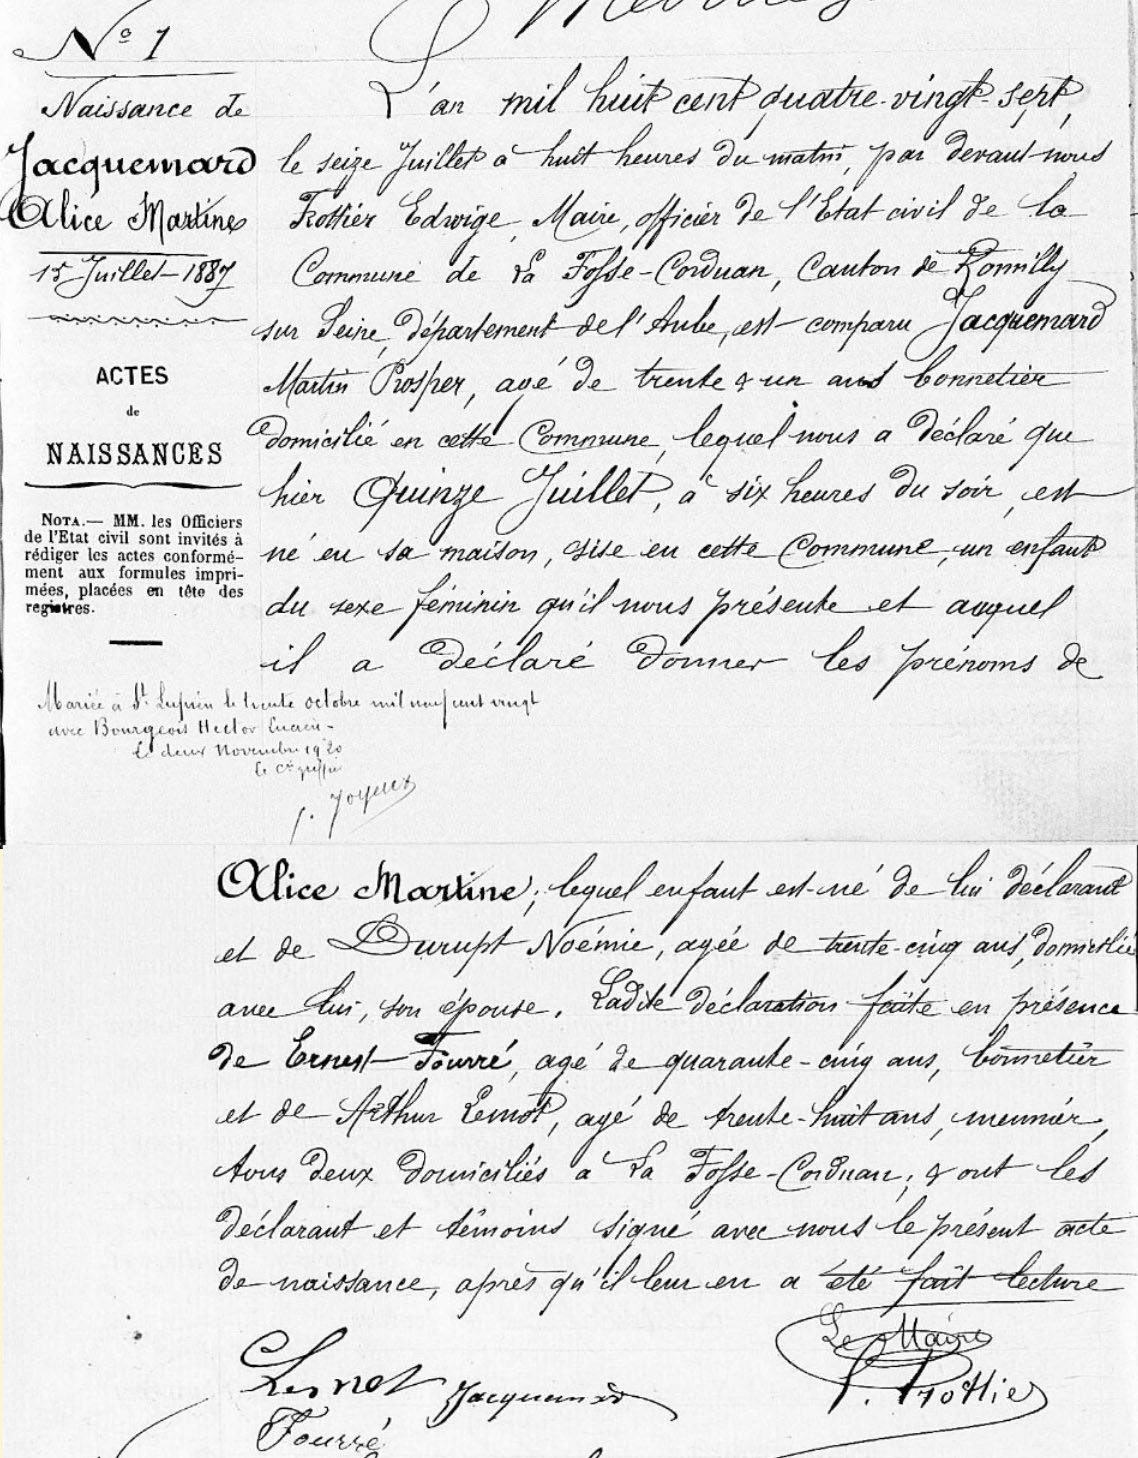 N° 1
Naissance de
Jacquemard
Alice Martine
15 Juillet 1887
ACTES
de
NAISSANCES
NOTA.— MM. les Officiers
de l'Etat civil sont invités à
rédiger les actes conformé-
ment aux formules impri-
mées, placées en tête des
registres.
L'an mil huit cent quatre-vingt-sept,
le seize Juillet à huit heures du matin, par devant nous
Trottier Edwige, Maire, officier de l'Etat civil de la
Commune de La Fosse-Corduan, Canton de Romilly
sur Seine, département de l'Aube, est comparu Jacquemard
Martin Prosper, agé de trente & un ans bonnetier
domicilié en cette Commune, lequel nous a déclaré que
hier Quinze Juillet, à six heures du soir, est
né en sa maison, sise en cette Commune, un enfant
du sexe féminin qu'il nous présente et auquel
il a déclaré donner les prénoms de
Mariée à St. Lupien le trente octobre mil neuf cent vingt
avec Bourgeois Hector Lucien -
Le deux Novembre 1920
Le Cis greffier
Joyeux
Alice Martine; lequel enfant est né de lui déclarant
et de Durupt Noémie, agée de trente-cinq ans, domiciliée
avec lui, son épouse. Ladite déclaration faite en présence
de Ernest Fourré, agé de quarante-cinq ans, bonnetier
et de Arthur Lemot, agé de trente-huit ans, meunier,
tous deux domiciliés à La Fosse-Corduan; & ont les
déclarant et témoins signé avec nous le présent acte
de naissance, après qu'il leur en a été fait lecture
Le Maire
Lemot Jacquemard Trottier
Fourré